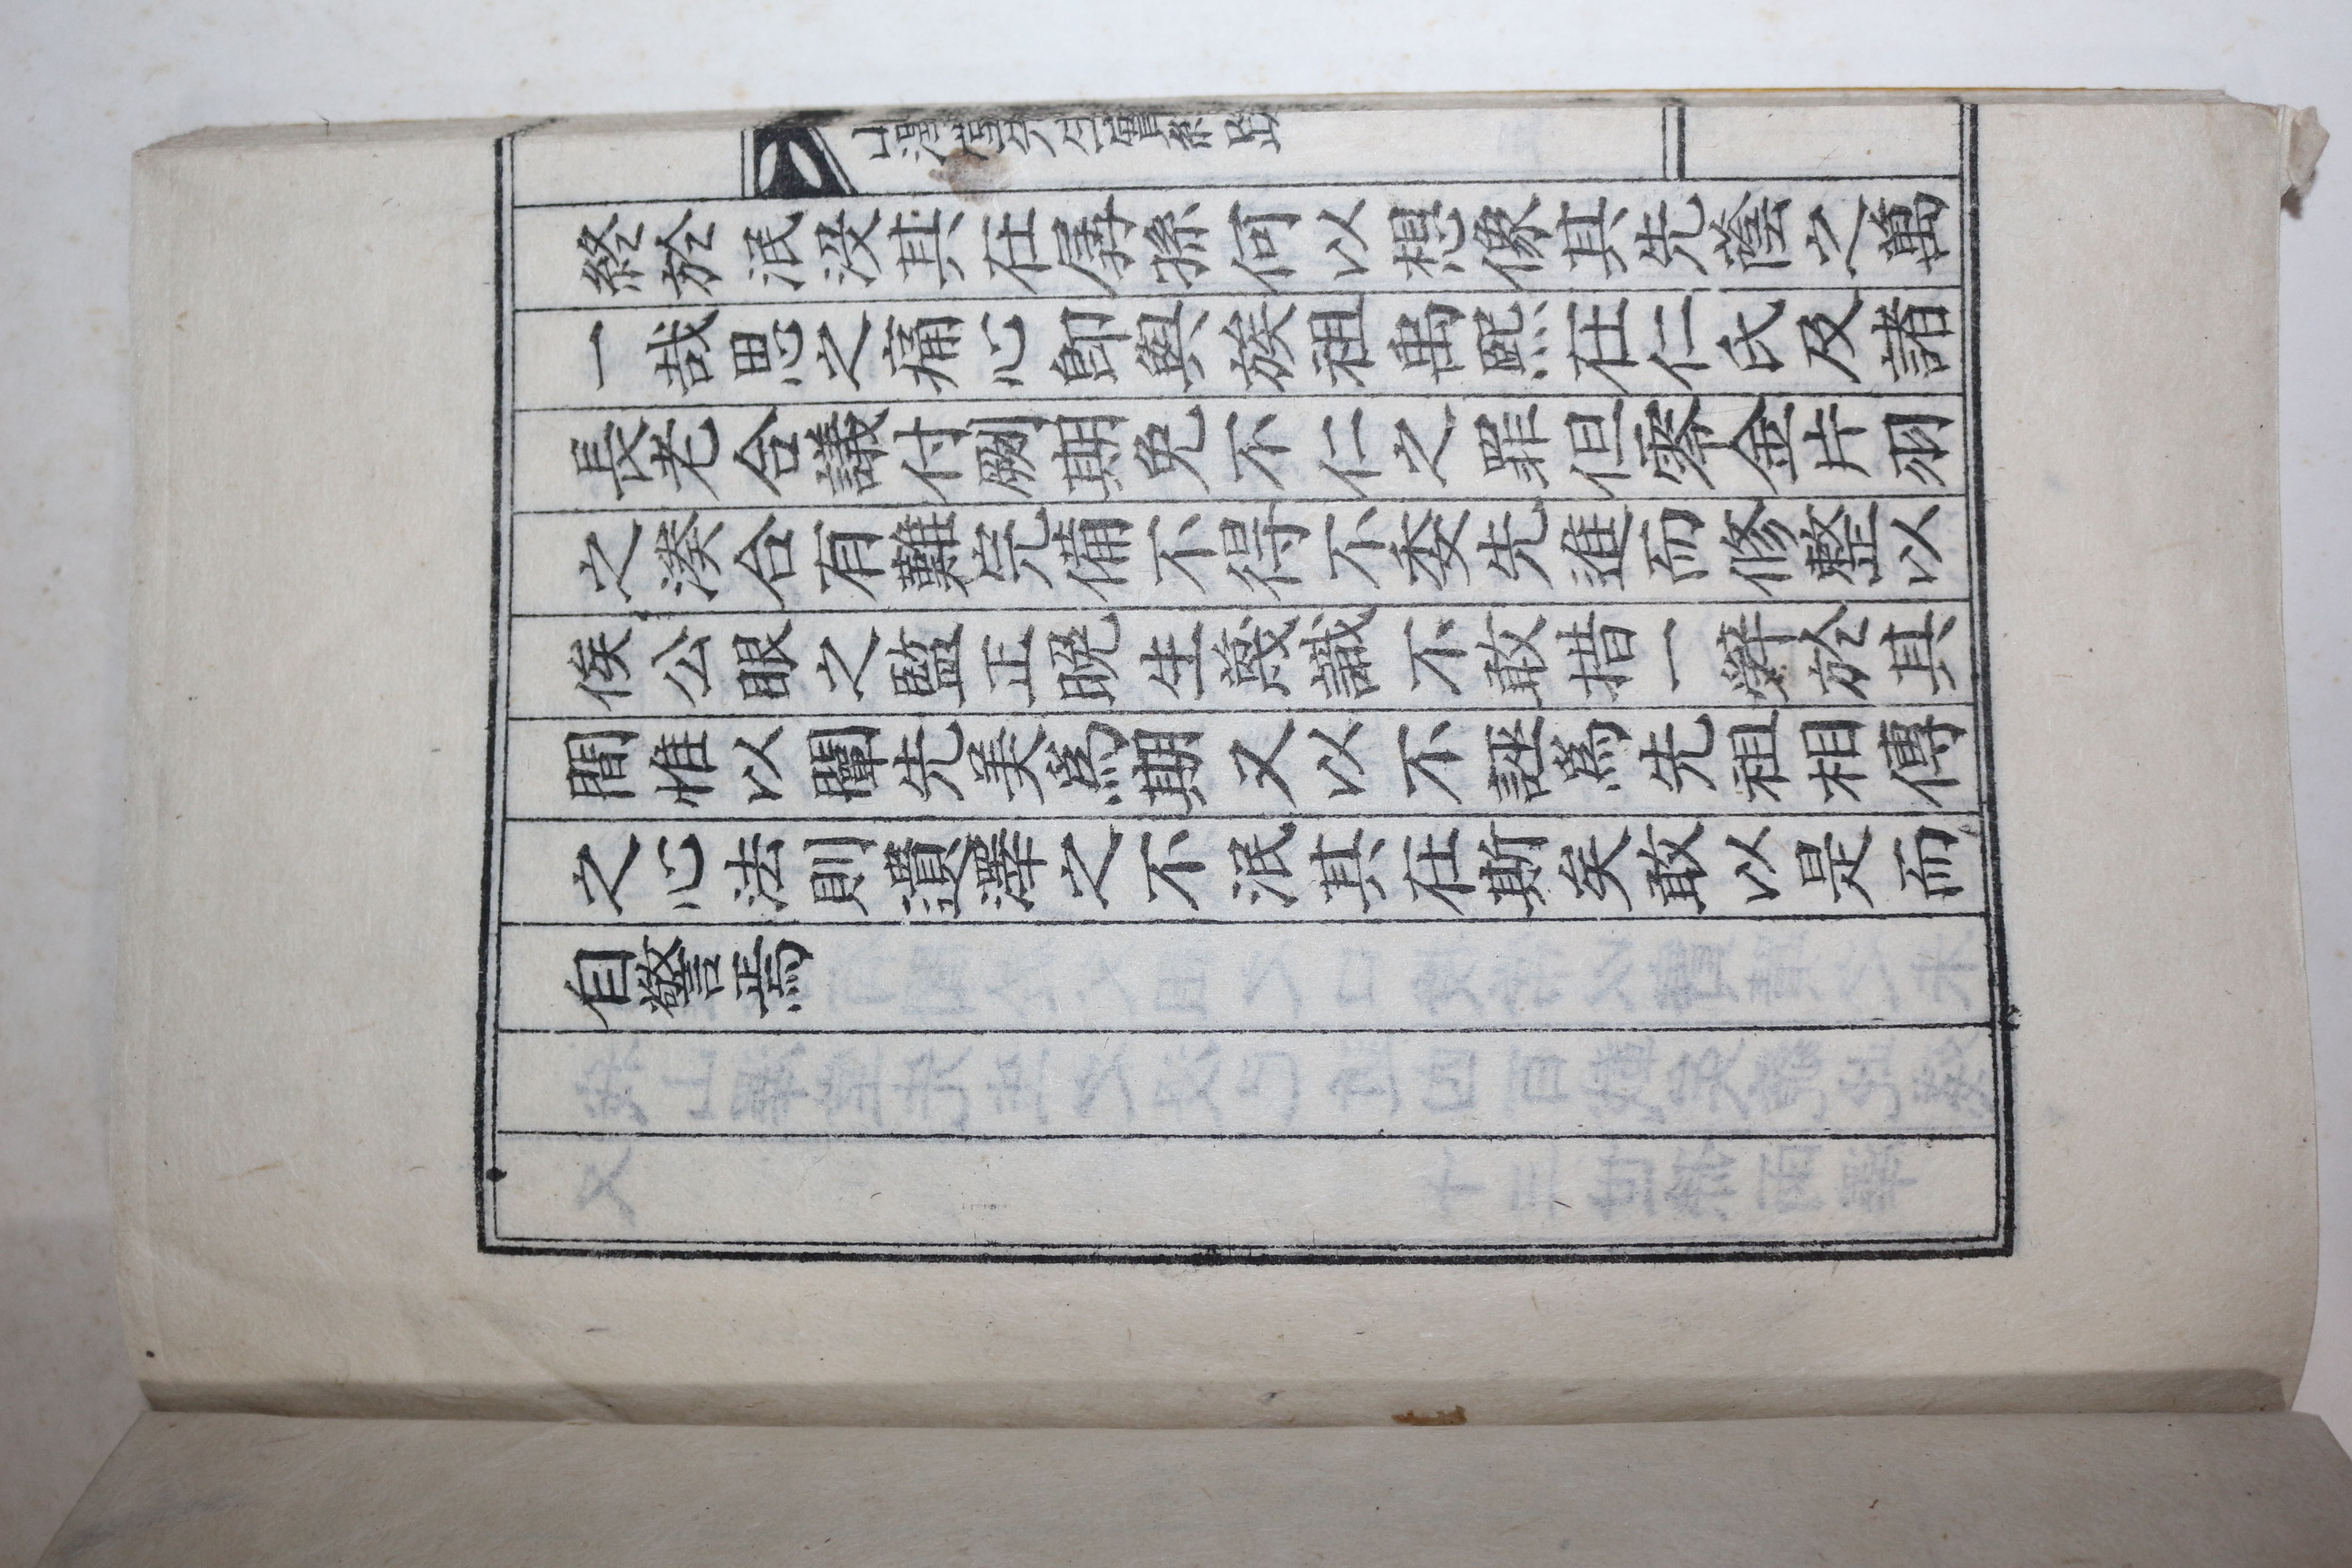 終於泯沒其在孱孫何以想像其先蔭之萬
一哉思之痛心卽與族祖禹熙在仁氏及諸
長老合議付剞期免不仁之罪但零金片羽
之湊合有難完備不得不委先進而修整以
俟公眼之監正晩生蔑識不敢措一辭於其
間惟以闡先美爲期又以不誣爲先祖相傳
之心法則遺澤之不泯其在斯矣敢以是而
自警焉